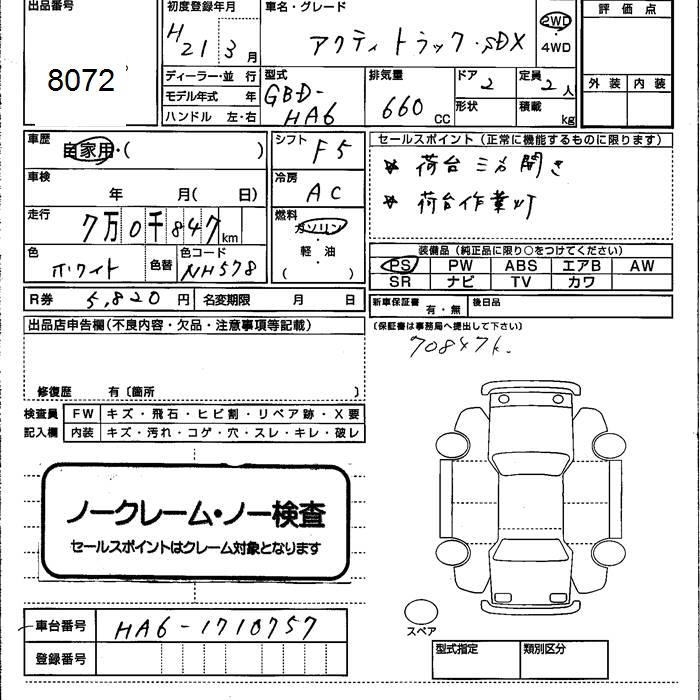 出品番号
8072
初度登録年月
H21 3月
車名・グレード
アクティトラック・SDX
2WD
・
4WD
評価点
外装 内装
ディーラー・並 行
モデル年式 年
ハンドル 左・右
型式
GBD-
HA6
排気量
660 CC
ドア
2
形状
定員
2人
積載
kg
車歴
自家用・( )
車検
年 月( 日)
走行
7万0千847km
色
ホワイト
色替
色コード
NH578
シフト
F5
冷房
AC
燃料
ガソリン
・
軽・油
( )
セールスポイント(正常に機能するものに限ります)
* 荷台三方開き
* 荷台作業灯
装備品(純正品に限り○をつけてください)
PS PW ABS エアB AW
SR ナビ TV カワ
R券 5,820円 名変期限 月 日
新車保証書 有・無 後日品
(保証書は事務局へ提出して下さい)
70847k.
出品店申告欄(不良内容・欠品・注意事項等記載)
修復歴 有〔箇所 〕
検査員 FW キズ・飛石・ヒビ割・リペア跡・X要
記入欄 内装 キズ・汚れ・コゲ・穴・スレ・キレ・破レ
ノークレーム・ノー検査
セールスポイントはクレーム対象となります
車台番号 HA6-1710757
登録番号
スペア
型式指定 類別区分